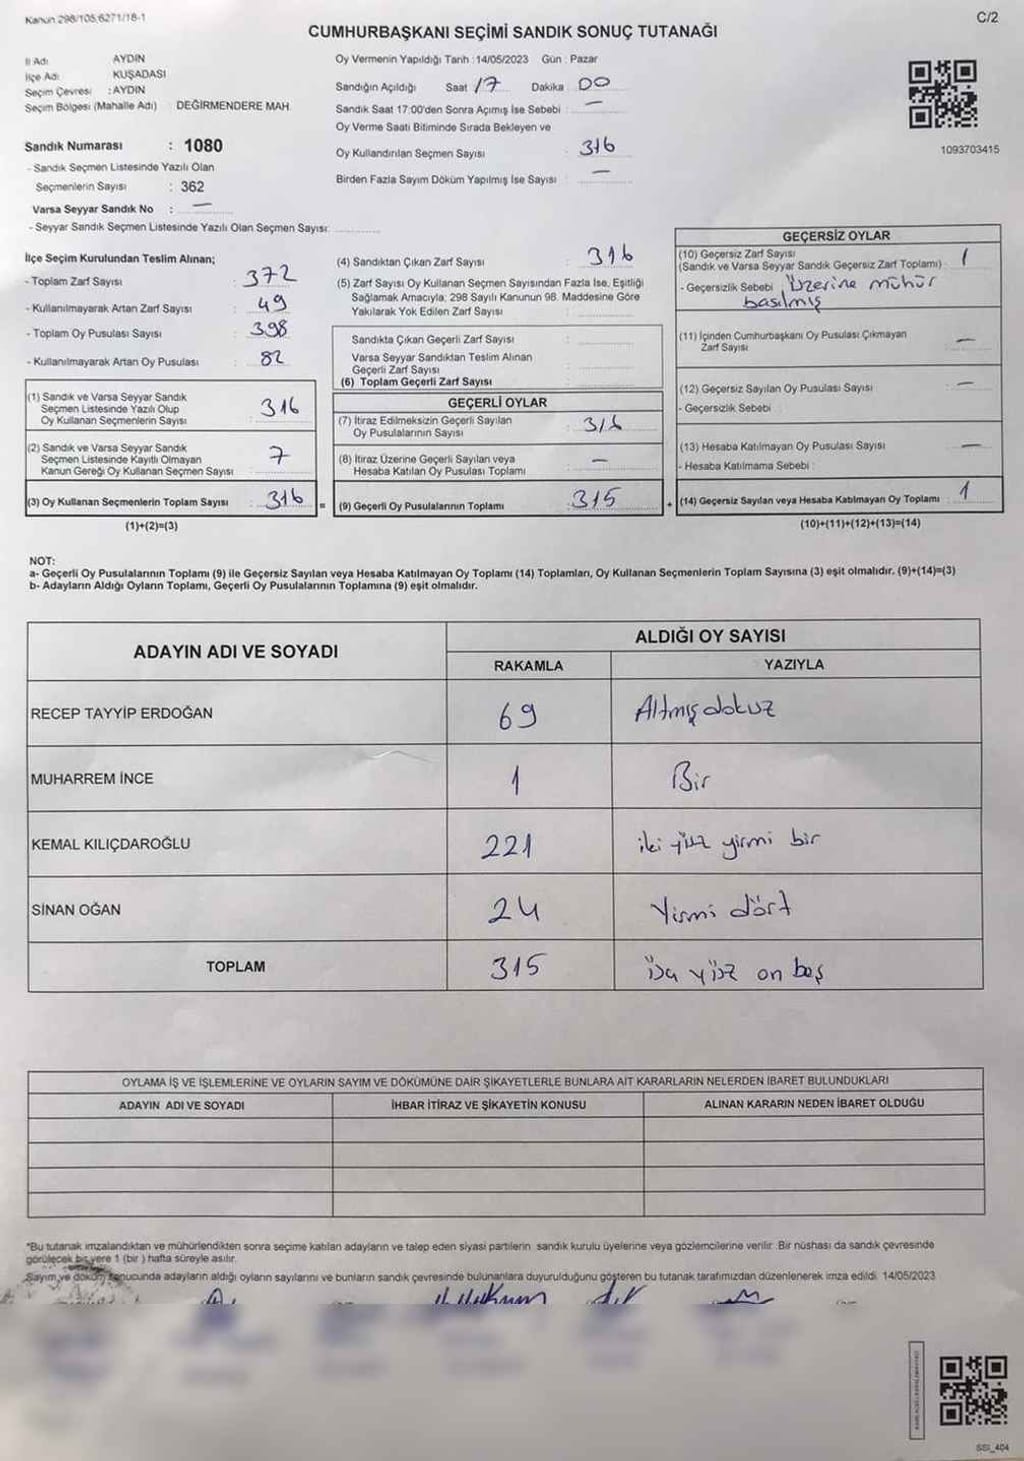 Kanun 298/105,6271/18-1
C/2
CUMHURBAŞKANI SEÇİMİ SANDIK SONUÇ TUTANAĞI
İl Adı : AYDIN
İlçe Adı : KUŞADASI
Seçim Çevresi : AYDIN
Seçim Bölgesi (Mahalle Adı) : DEĞİRMENDERE MAH.
Sandık Numarası : 1080
- Sandık Seçmen Listesinde Yazılı Olan
Seçmenlerin Sayısı : 362
Varsa Seyyar Sandık No : —
- Seyyar Sandık Seçmen Listesinde Yazılı Olan Seçmen Sayısı:
Oy Vermenin Yapıldığı Tarih : 14/05/2023 Gün : Pazar
Sandığın Açıldığı Saat 17 Dakika 00
Sandık Saat 17:00'den Sonra Açımış İse Sebebi : —
Oy Verme Saati Bitiminde Sırada Bekleyen ve
Oy Kullandırılan Seçmen Sayısı : 316
Birden Fazla Sayım Döküm Yapılmış İse Sayısı : —
1093703415
İlçe Seçim Kurulundan Teslim Alınan;
- Toplam Zarf Sayısı : 372
- Kullanılmayarak Artan Zarf Sayısı : 49
- Toplam Oy Pusulası Sayısı : 398
- Kullanılmayarak Artan Oy Pusulası : 82
(1) Sandık ve Varsa Seyyar Sandık
Seçmen Listesinde Yazılı Olup
Oy Kullanan Seçmenlerin Sayısı : 316
(2) Sandık ve Varsa Seyyar Sandık
Seçmen Listesinde Kayıtlı Olmayan
Kanun Gereği Oy Kullanan Seçmen Sayısı : 7
(3) Oy Kullanan Seçmenlerin Toplam Sayısı : 316
(1)+(2)=(3)
(4) Sandıktan Çıkan Zarf Sayısı : 316
(5) Zarf Sayısı Oy Kullanan Seçmen Sayısından Fazla İse, Eşitliği
Sağlamak Amacıyla; 298 Sayılı Kanunun 98. Maddesine Göre
Yakılarak Yok Edilen Zarf Sayısı :
Sandıkta Çıkan Geçerli Zarf Sayısı :
Varsa Seyyar Sandıktan Teslim Alınan
Geçerli Zarf Sayısı :
(6) Toplam Geçerli Zarf Sayısı :
GEÇERLİ OYLAR
(7) İtiraz Edilmeksizin Geçerli Sayılan
Oy Pusulalarının Sayısı : 316
(8) İtiraz Üzerine Geçerli Sayılan veya
Hesaba Katılan Oy Pusulası Toplamı : —
= (9) Geçerli Oy Pusulalarının Toplamı : 315
GEÇERSİZ OYLAR
(10) Geçersiz Zarf Sayısı
(Sandık ve Varsa Seyyar Sandık Geçersiz Zarf Toplamı) : 1
- Geçersizlik Sebebi : Üzerine mühür
basılmış
(11) İçinden Cumhurbaşkanı Oy Pusulası Çıkmayan
Zarf Sayısı : —
(12) Geçersiz Sayılan Oy Pusulası Sayısı : —
- Geçersizlik Sebebi :
(13) Hesaba Katılmayan Oy Pusulası Sayısı : —
- Hesaba Katılmama Sebebi :
+ (14) Geçersiz Sayılan veya Hesaba Katılmayan Oy Toplamı : 1
(10)+(11)+(12)+(13)=(14)
NOT:
a- Geçerli Oy Pusulalarının Toplamı (9) ile Geçersiz Sayılan veya Hesaba Katılmayan Oy Toplamı (14) Toplamları, Oy Kullanan Seçmenlerin Toplam Sayısına (3) eşit olmalıdır. (9)+(14)=(3)
b- Adayların Aldığı Oyların Toplamı, Geçerli Oy Pusulalarının Toplamına (9) eşit olmalıdır.
ADAYIN ADI VE SOYADI
ALDIĞI OY SAYISI
RAKAMLA YAZIYLA
RECEP TAYYİP ERDOĞAN 69 Altmış dokuz
MUHARREM İNCE 1 Bir
KEMAL KILIÇDAROĞLU 221 iki yüz yirmi bir
SİNAN OĞAN 24 Yirmi dört
TOPLAM 315 üç yüz on beş
OYLAMA İŞ VE İŞLEMLERİNE VE OYLARIN SAYIM VE DÖKÜMÜNE DAİR ŞİKAYETLERLE BUNLARA AİT KARARLARIN NELERDEN İBARET BULUNDUKLARI
ADAYIN ADI VE SOYADI İHBAR İTİRAZ VE ŞİKAYETİN KONUSU ALINAN KARARIN NEDEN İBARET OLDUĞU
*Bu tutanak imzalandıktan ve mühürlendikten sonra seçime katılan adayların ve talep eden siyasi partilerin sandık kurulu üyelerine veya gözlemcilerine verilir. Bir nüshası da sandık çevresinde
görülecek bir yere 1 (bir ) hafta süreyle asılır.
Sayım ve döküm sonucunda adayların aldığı oyların sayılarını ve bunların sandık çevresinde bulunanlara duyurulduğunu gösteren bu tutanak tarafımızdan düzenlenerek imza edildi. 14/05/2023
SSI_404